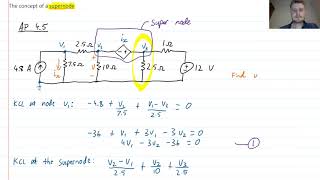 The concept of a supernode
AP 4.5
Super node
V₁
2.5Ω
V₂
iₓ
V₃
1Ω
4.8 A
iₓ
7.5Ω
+
v
-
10Ω
2.5Ω
+
-
12 V
Find v
KCL at node V₁:
-4.8 + V₁/7.5 + (V₁-V₂)/2.5 = 0
-36 + V₁ + 3V₁ - 3V₂ = 0
4V₁ - 3V₂ - 36 = 0
①
KCL at the Supernode:
(V₂-V₁)/2.5 + V₂/10 + V₃/2.5